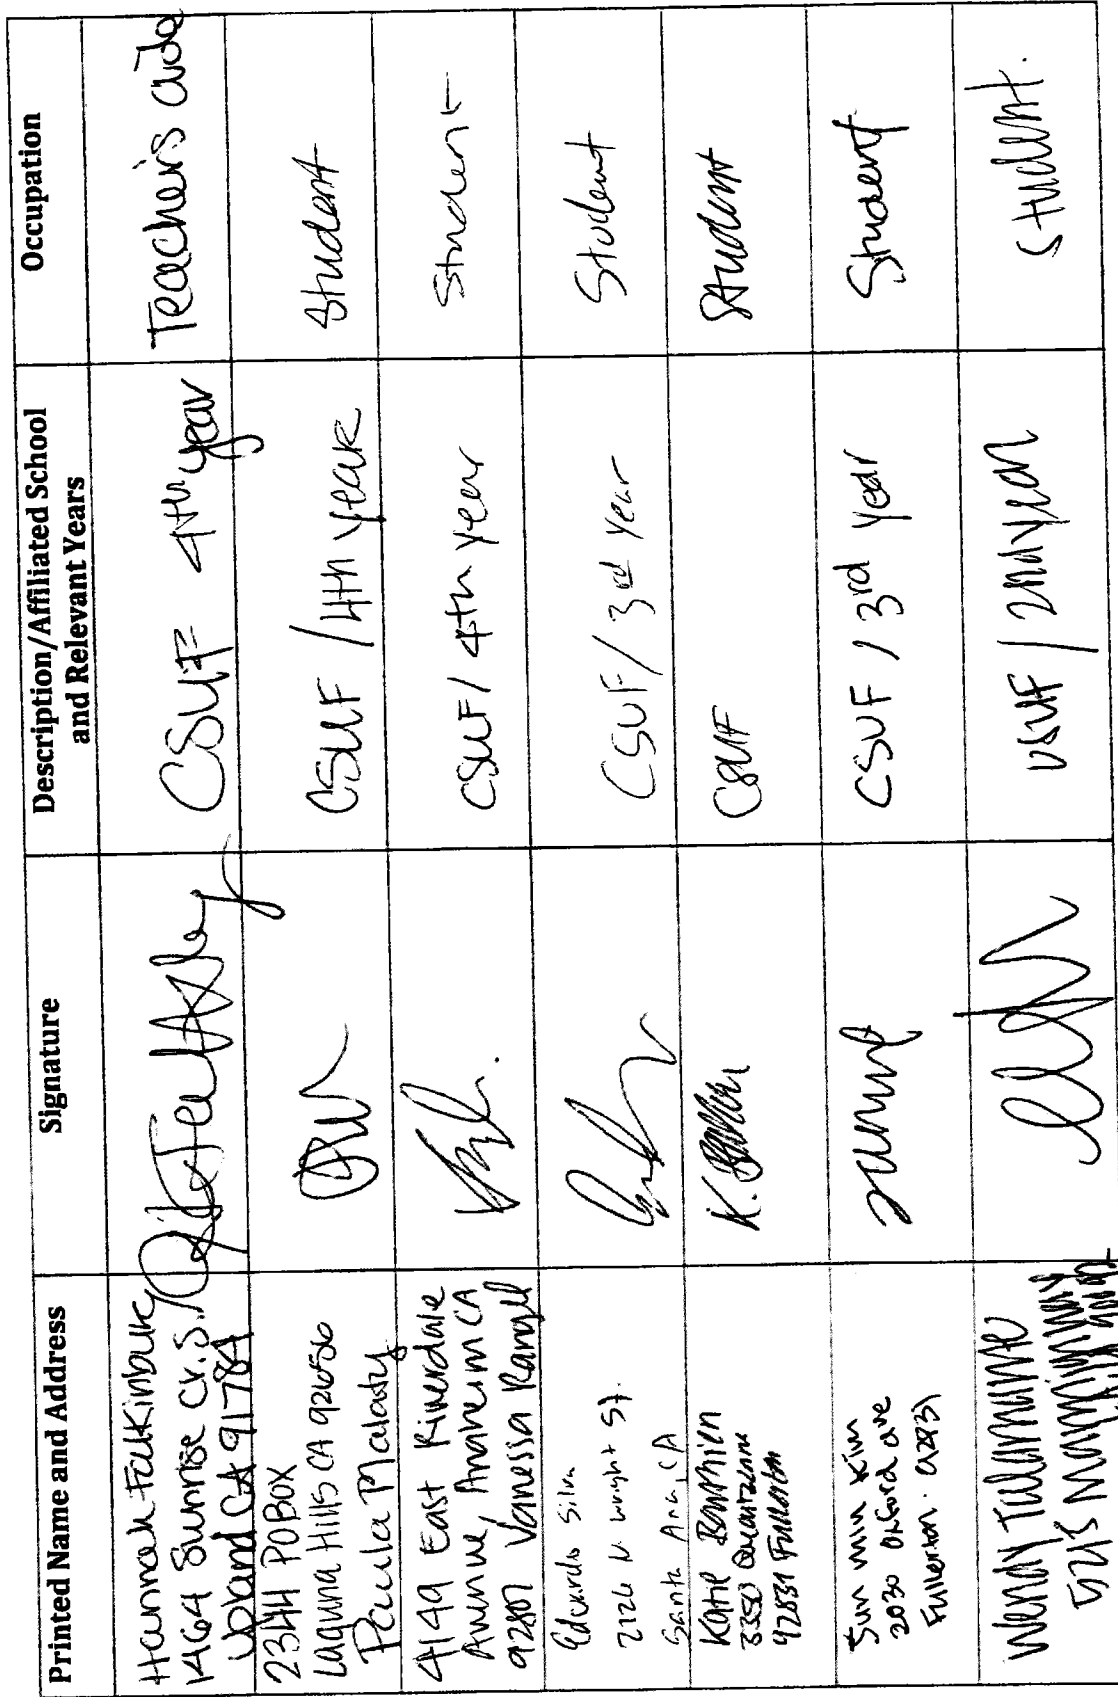 Printed Name and Address
Signature
Description/Affiliated School
and Relevant Years
Occupation
Hannah Falkinburg
1464 Sunrise Cr. S.
Upland CA 91784
CSUF 4th year
Teacher's aide
23144 PO BOX
Laguna Hills CA 92656
Paula Malady
CSUF / 4th year
Student
4149 East Riverdale
Avenue, Anaheim CA
92807 Vanessa Rangel
CSUF / 4th year
Student
Eduardo Silva
2126 N. Wright St.
Santa Ana, CA
CSUF / 3rd year
Student
Katie
3350
92831 Fullerton
K.
CSUF
Student
Sun Min Kim
2030 Oxford ave
Fullerton. 92831
CSUF / 3rd year
Student
Wendy Talamante
5213
CSUF / 2nd year
Student.